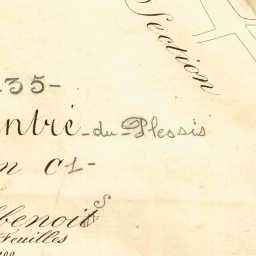 Section
35-
ntré-du-Plessis
n C1-
benoit
Feuilles